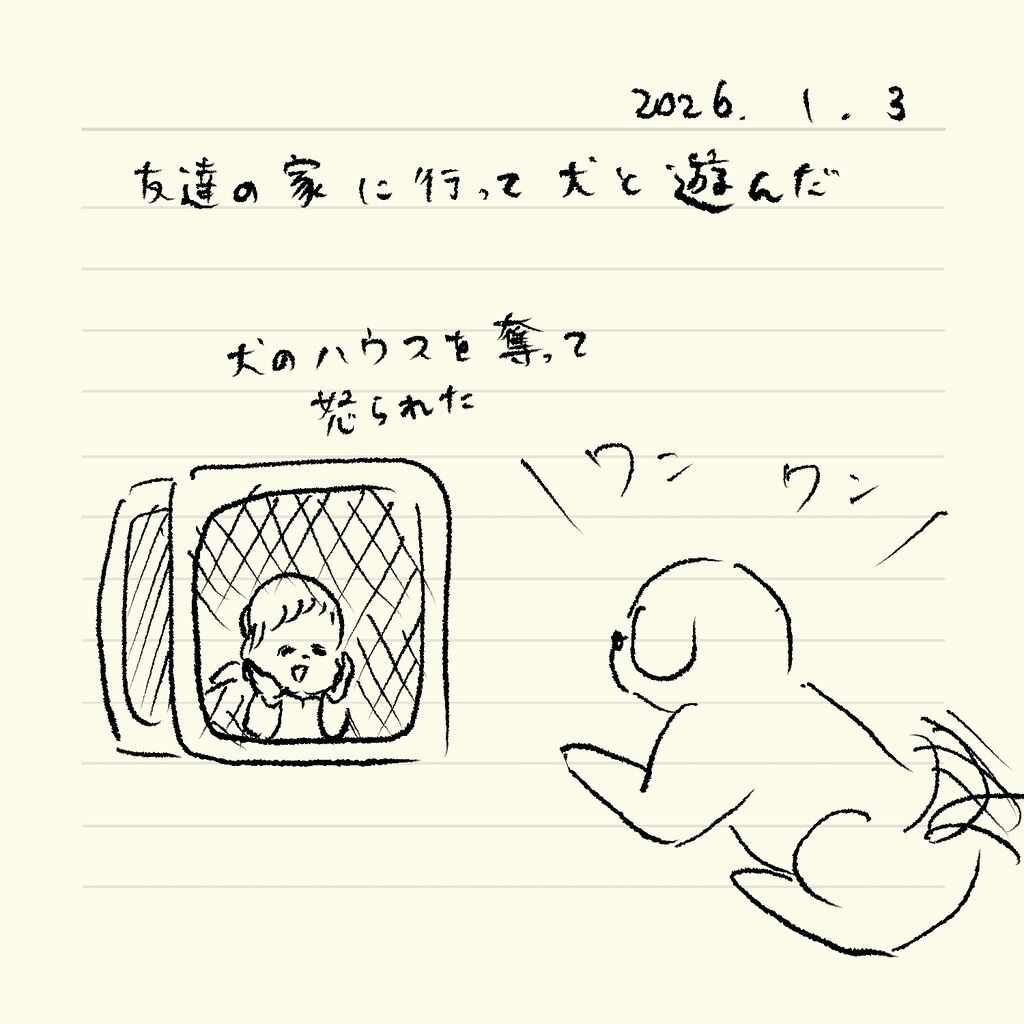 2026. 1. 3
友達の家に行って犬と遊んだ
犬のハウスを奪って
怒られた
ワン
ワン